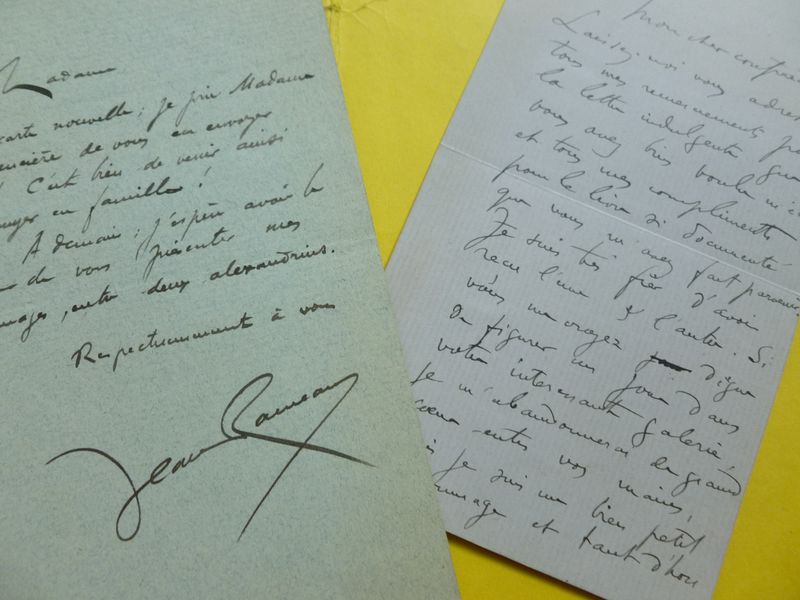 Madame
carte nouvelle ; je prie Madame
de vous en envoyer
! C'est bien de venir ainsi
en famille !
A demain ; j'espère avoir le
de vous présenter mes
, entre deux alexandrins.
Respectueusement à vous
Jean Rameau
Mon cher confrè
Laissez-moi vous adres
tous mes remerciements po
la lettre indulgente que
vous avez bien voulu m'é
et tous mes compliments
pour le livre si documenté
que vous m'avez fait parvenir.
Je suis très fier d'avoir
reçu l'une & l'autre. Si
vous me croyez digne
de figurer un jour dans
votre intéressante galerie,
je m'abandonnerai de grand
coeur entre vos mains,
je suis un bien petit
et tant d'hon